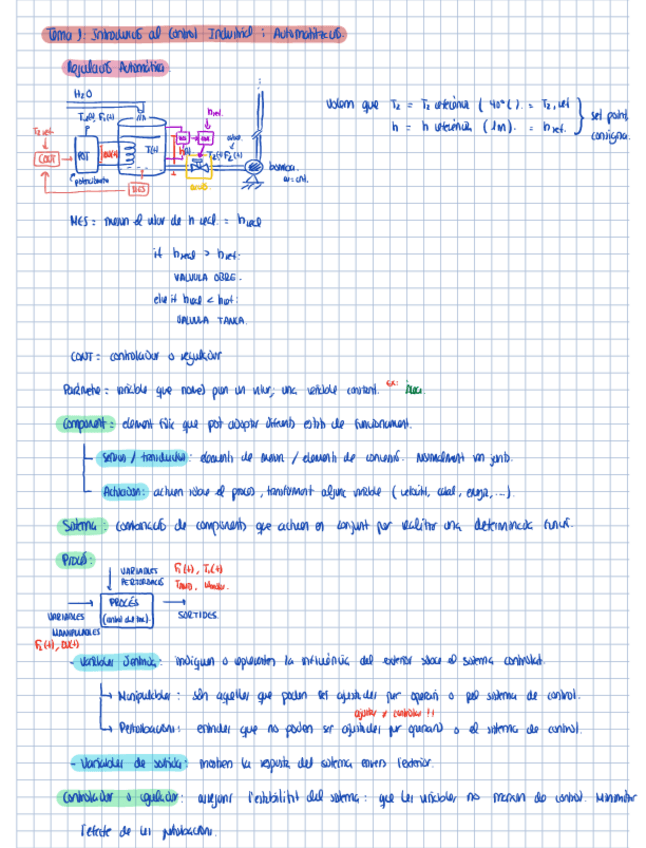 Tema 1: Introducció al Control Industrial i Automatització.
Regulació Automàtica
H2O
T1(t), F1(t)
T2 ref.
CONT
POT
Q(t)
T(t)
potència
MES
href
T2(t) F2(t)
bomba
ω = ct.
Volem que T2 = T2 interina (40°C). = T2,ref
h = h interina (1m). = href.
set point
consigna.
MES: mesura el valor de h real = hreal
if hreal > href:
VALVULA OBRE.
else if hreal < href:
VALVULA TANCA.
CONT: controlador o regulador
Paràmetre = variable que només pren un valor; una variable constant. ex:
Component: element físic que pot adoptar diferents estats de funcionament.
Sensor / transductor: elements de mesura / elements de conversió. Normalment van junts.
Actuadors: actuen sobre el procés, transformant alguna variable (velocitat, cabal, energia, ...).
Sistema: combinació de components que actuen en conjunt per realitzar una determinada funció.
Procés:
VARIABLES PERTORBACIÓ
F1(t), T1(t)
TAMB,
PROCÉS
(control del tanc).
VARIABLES MANIPULABLES
SORTIDES
F2(t), Q(t)
- Variables d'entrada: indiquen o representen la influència del exterior sobre el sistema controlat.
Manipulables: són aquelles que poden ser ajustades per operaris o pel sistema de control.
ajustar ≠ controlar !!
Pertorbacions: entrades que no poden ser ajustades per operaris o el sistema de control.
- Variables de sortida: mostren la resposta del sistema envers l'exterior.
Controlador o regulador: assegura l'estabilitat del sistema: que les variables no marxin de control. Minimitzar
l'efecte de les pertorbacions.